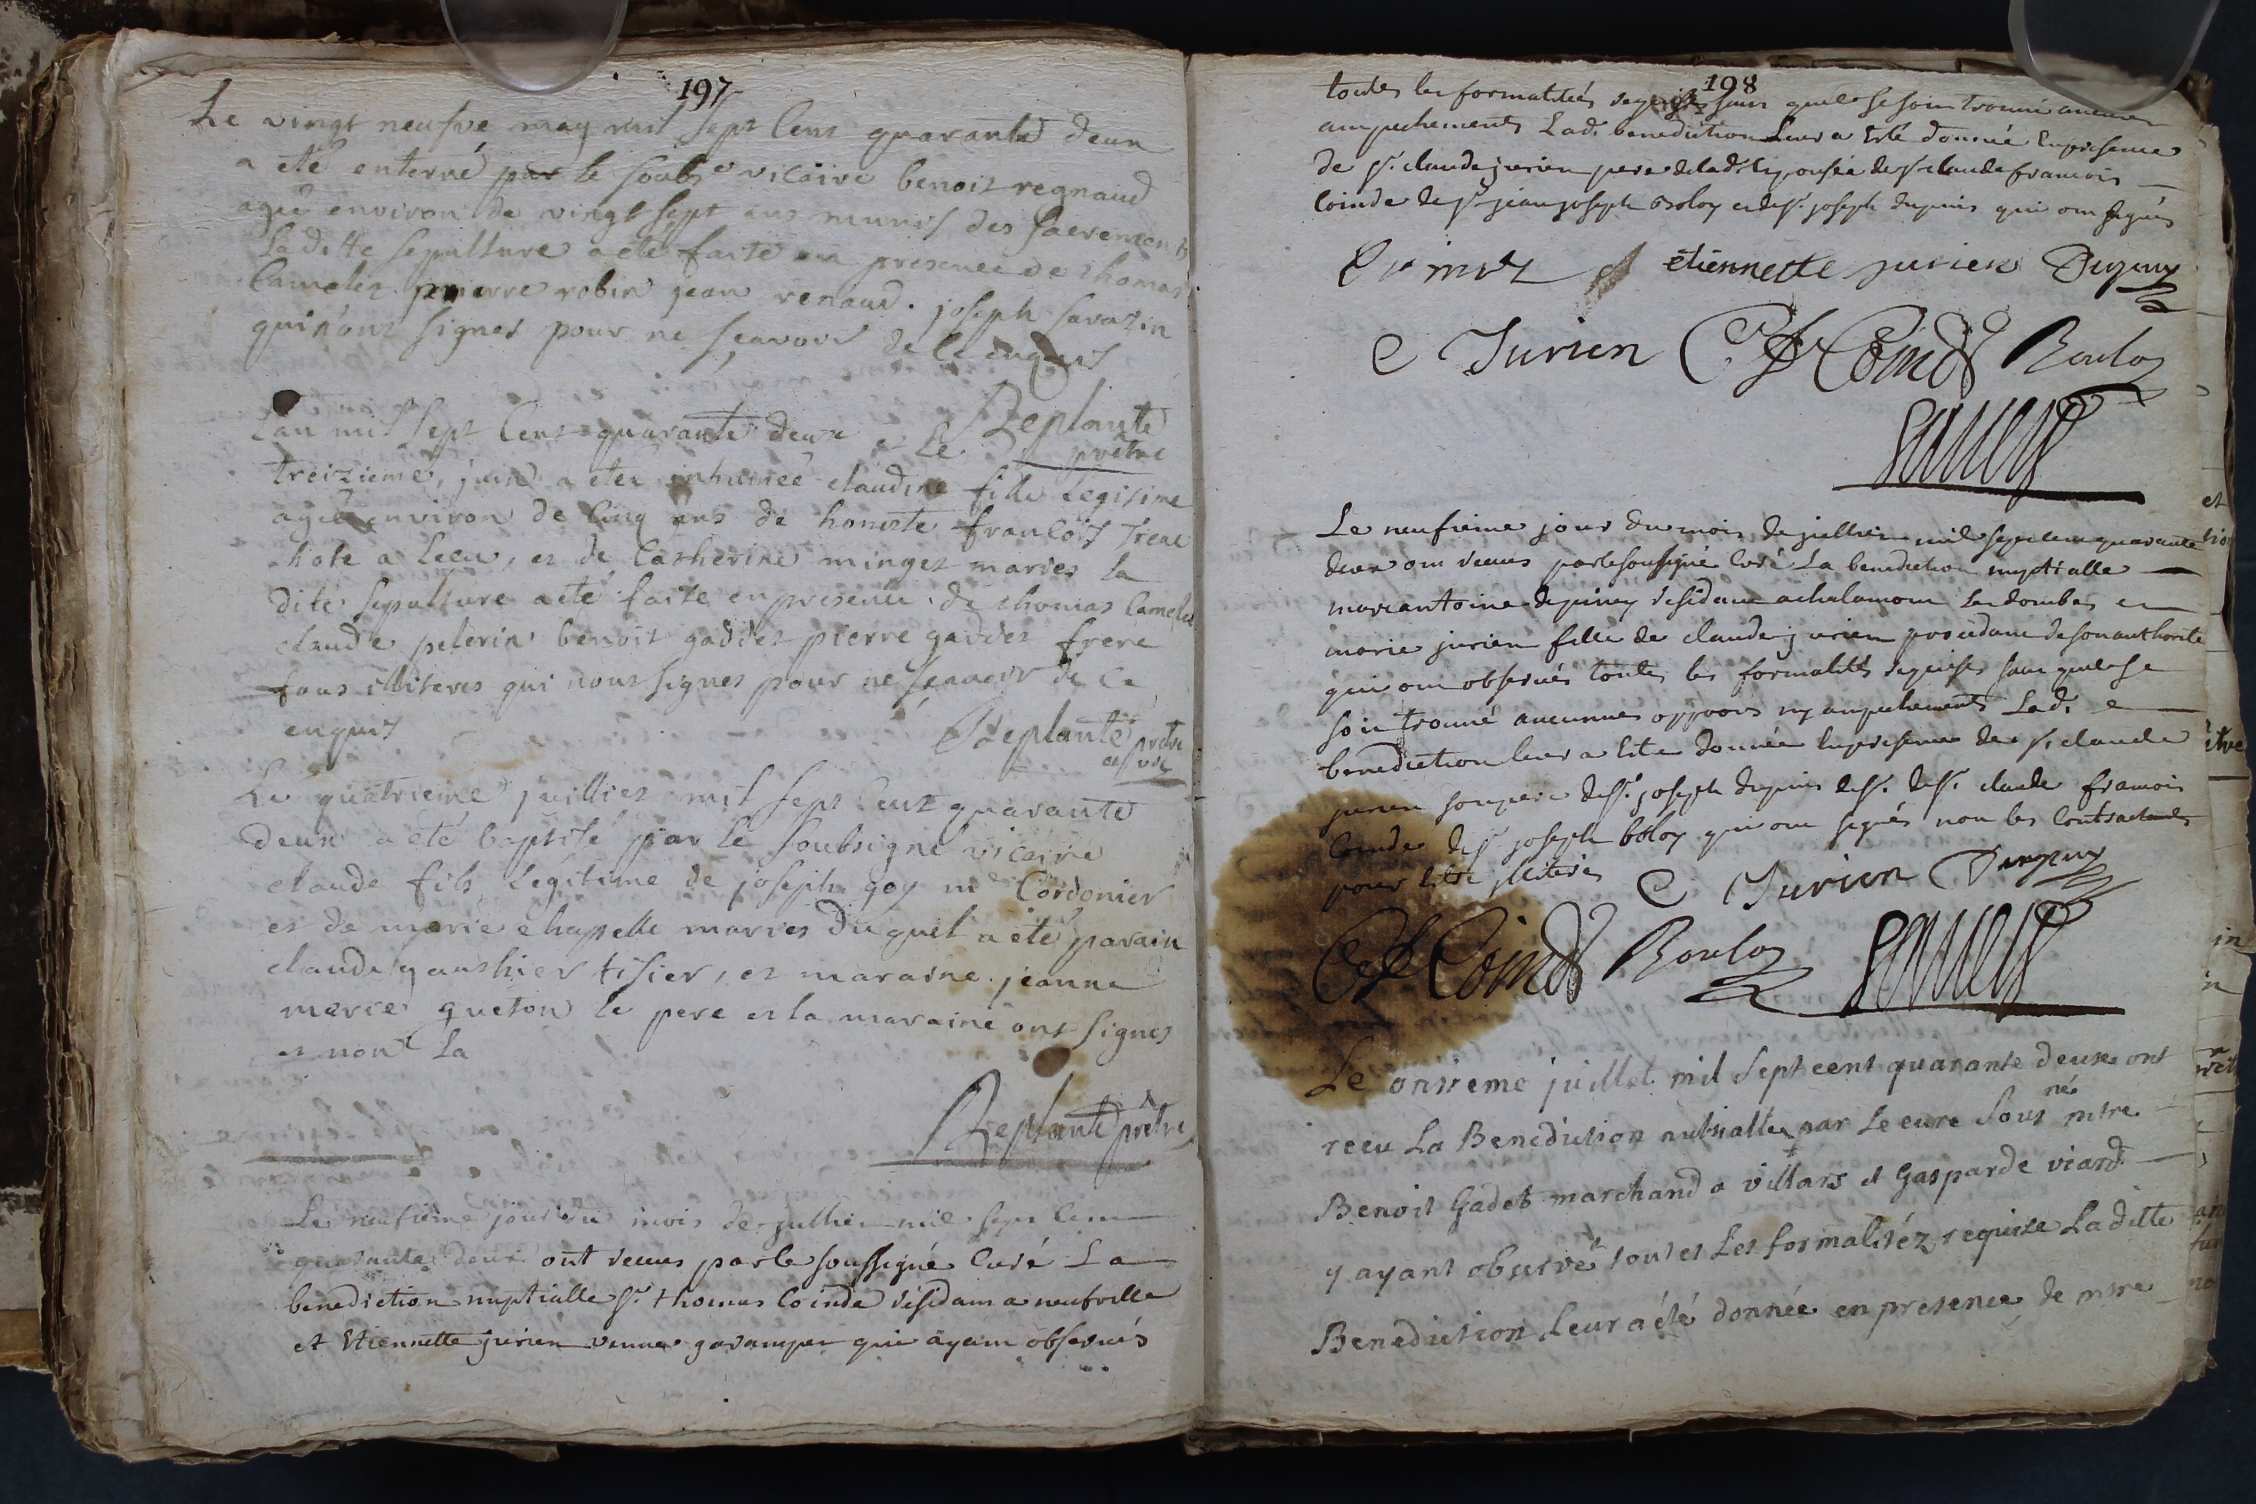 197
Le vingt neufve may mil sept cent quarante deux
a été enterré par le soubsé vicaire benoit regnaud
agé environ de vingt sept ans munis des sacrements
la ditte sepulture a été faite en presence de thomas
Camelet pierre robin jean renaud. joseph savazin
qui n'ont signes pour ne sçavoir de ce enquis
Replante
prêtre
Lan mil sept Cent quarante deux et le
treizieme, juin a eter inhumée claudine fille legitime
agée environ de Cinq ans de honeste françois
hote a lecu, et de Catherine minget maries la
dite sepulture a été faite en presence de thomas Camelet
claude pelerin benoit gaddet pierre gaddet frere
tous illiteres qui nont signes pour ne sçauoir de Ce
enquis
Replante prêtre
vic
Le quatrieme juilliet mil sept Cent quarante
deux a eté baptisé par le soubsigné vicaire
claude fils legitime de joseph goy me Cordonier
et de marie chapelle maries duquel a été parain
claude gaushier tisier, et maraine jeanne
marie queton le pere et la maraine ont signes
et non la
Replante prêtre
Le neufvieme jour du mois de juillier mil sept Cent
quarante deux ont receus par le soussigné Curé La
benediction nuptialle sr. thomas Coinde residant a neufville
et Etiennette jurien veuve garamper qui ayant observés
198
toutes les formalitées requises sans quil se soit trouvé aucuns
ampechements Lad. benediction Leur a Esté donnée En presence
de sr. claude jurien pere de lad. Epousée de sr claude francois
Coinde de sr jean joseph boloy et de sr. joseph dupuis qui ont signés
etiennette jurien Dupuy
C Jurien C f Coinde Bouloy
Le neufvieme jour du mois de juillier mil sept cent quarante
deux ont receus par le soussigné Curé La benediction nuptialle
marc antoine depiney residant a chalamont En dombes et
marie jurien fille de claude jurien procedant de son authorité
qui ont observés toutes les formalités requises sans quil se
soit trouvé aucunnes opposons ny ampechements Lad. e
benediction leur a Esté donnée En presence de sr. claude
jurien son pere de sr. joseph dupuis de sr. claude francois
Coinde de sr joseph boloy qui ont signés non les Contractants
pour Estre illiterés C Jurien Dupuy
C f Coinde Bouloy
Le onsieme juillet mil sept cent quarante deux ont
receu La Benediction nubtialle par Le cure Sousné mtre
Benoit Gadet marchand a villars et Gasparde viard
y ayant observé toutes Les formalitéz requise Laditte
Benediction Leur a été donnée en presence de mtre